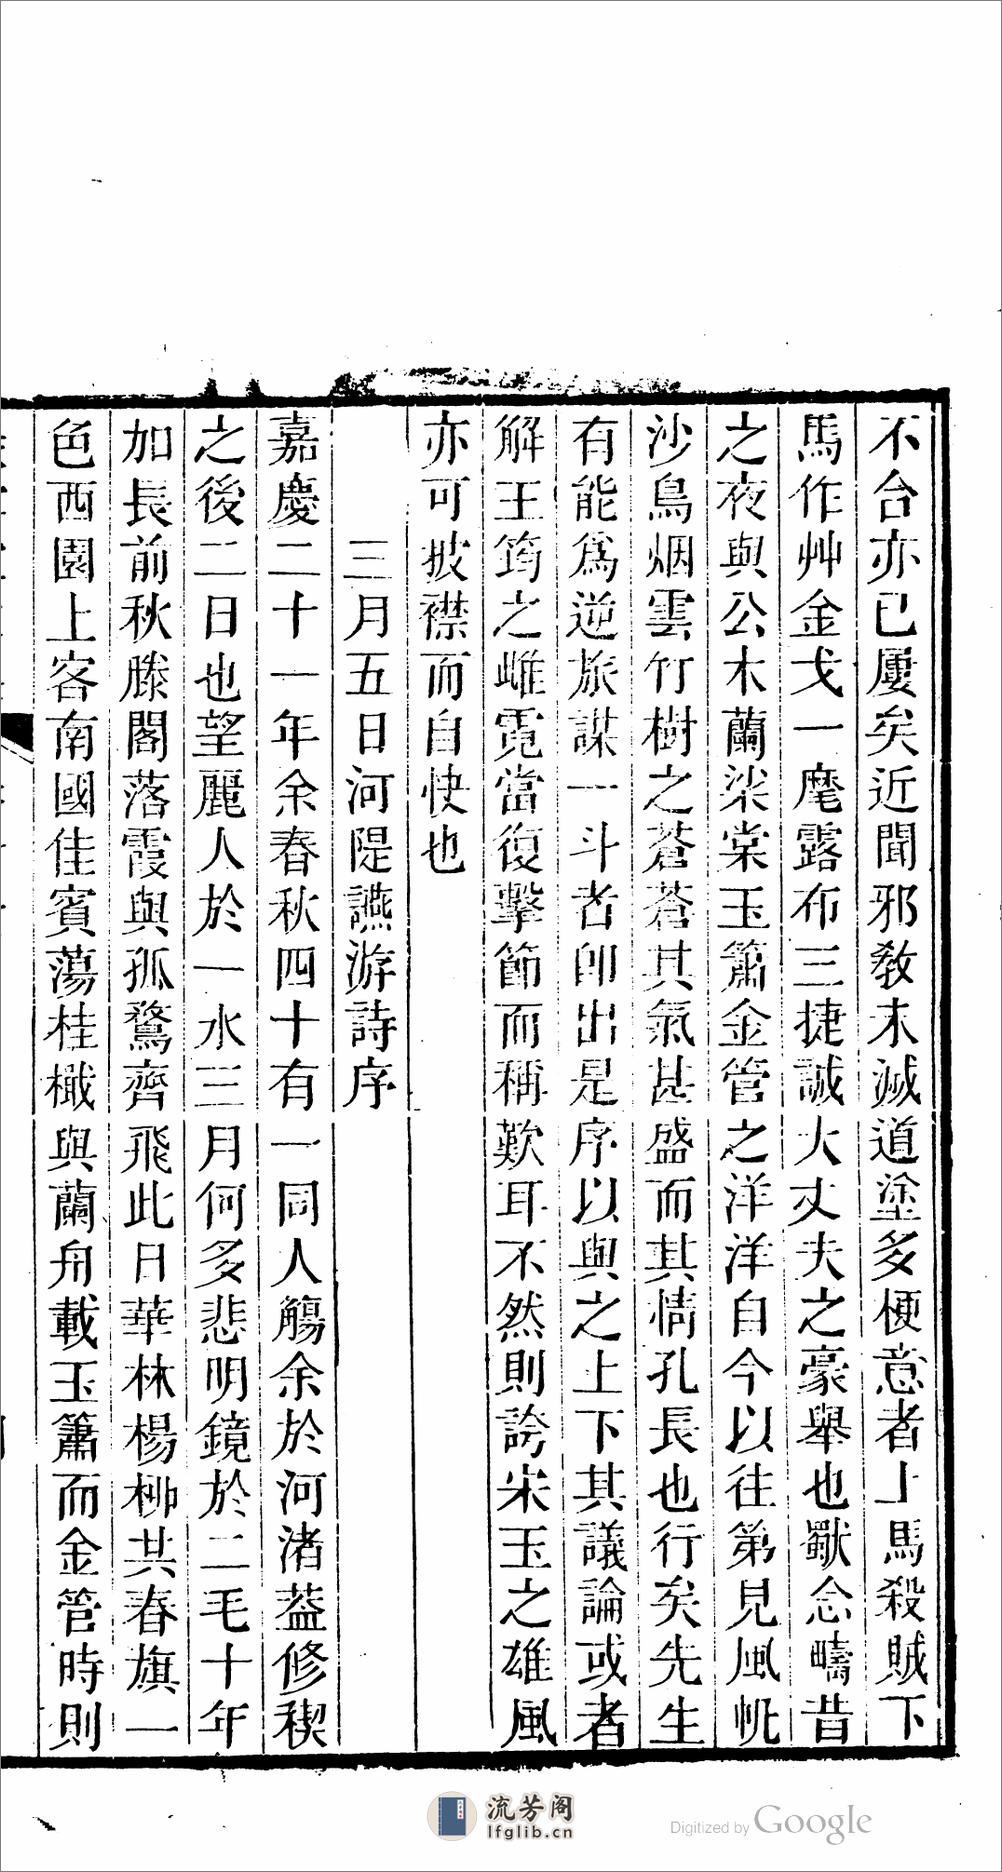 不合亦已屢矣近聞邪教未滅道塗多梗意者上馬殺賊下
馬作艸金戈一麾露布三捷誠大丈夫之豪舉也獸念疇昔
之夜與公木蘭柒棠玉簫金管之洋洋自今以往第見風帆
沙鳥烟雲竹樹之蒼蒼其氣甚盛而其情孔長也行矣先生
有能爲逆旅謀一斗者卽出是序以與之上下其議論或者
解王筠之雌霓當復擊節而稱歎耳不然則誇宋玉之雄風
亦可披襟而自快也
三月五日河隄讌游詩序
嘉慶二十一年余春秋四十有一同人觴余於河渚葢修禊
之後二日也望麗人於一水三月何多悲明鏡於二毛十年
加長前秋滕閣落霞與孤鶩齊飛此日華林楊柳共春旗一
色西園上客南國佳賓蕩桂檝與蘭舟載玉簫而金管時則
流芳阁
lfglib.cn
Digitized by Google